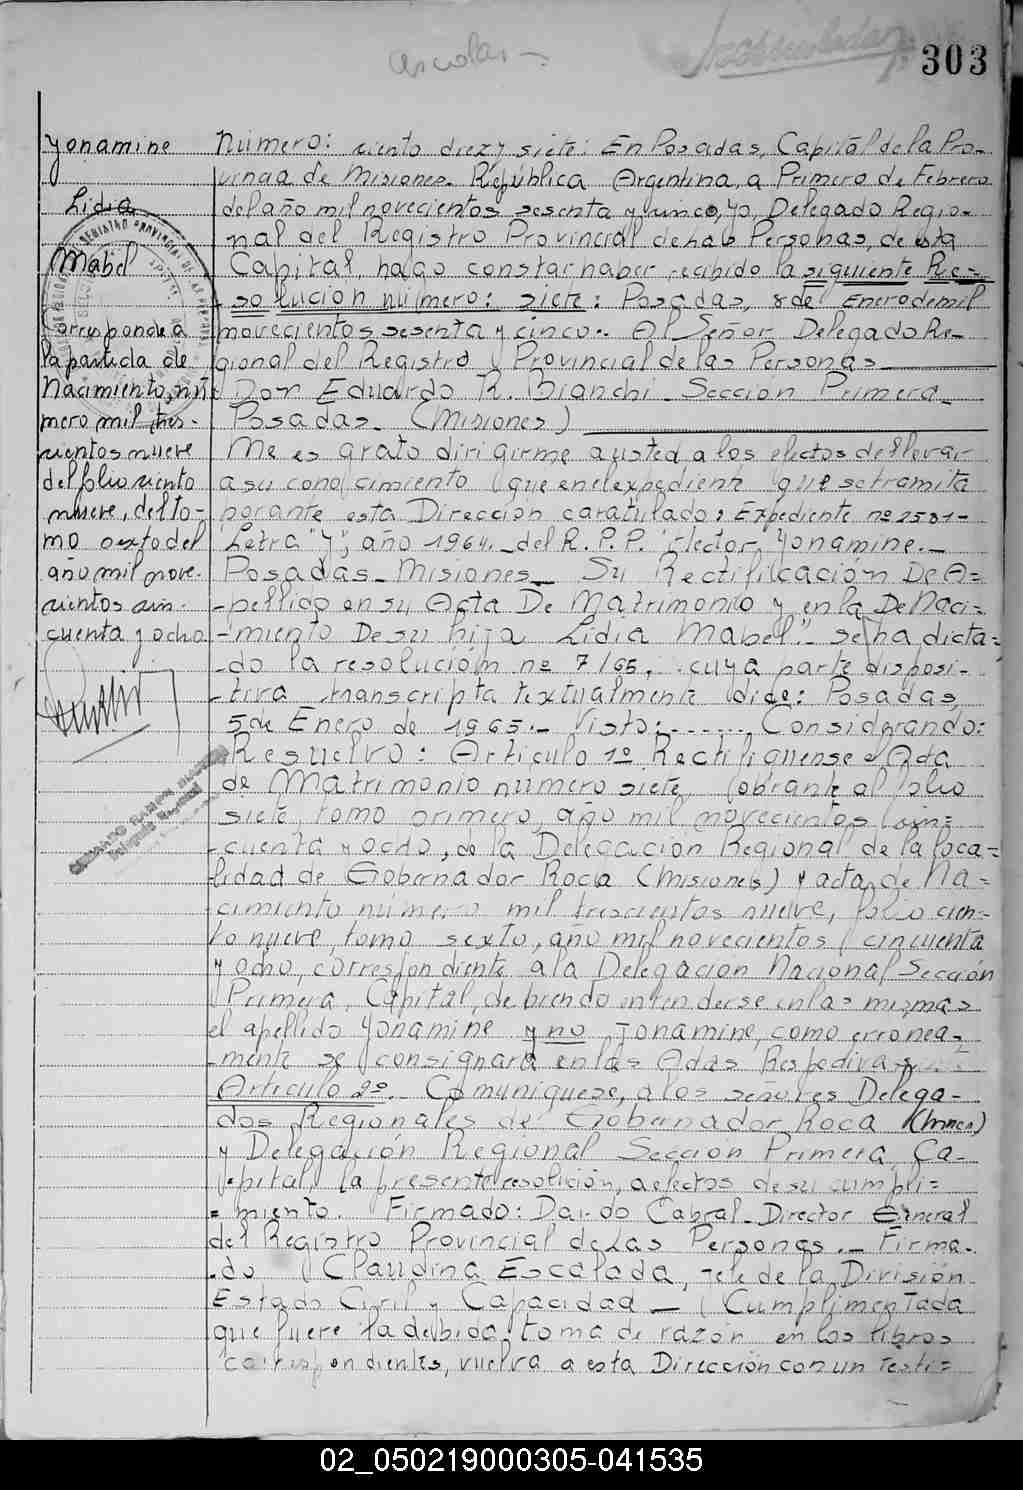 303
Yonamine
Lidia
Mabel
Corresponde a
la partida de
Nacimiento, nú-
mero mil tres-
cientos nueve
del folio ciento
nueve, del to-
mo sexto del
año mil nove-
cientos cin-
cuenta y ocho
Número: ciento diez y siete: En Posadas, Capital de la Pro-
vincia de Misiones. República Argentina, a Primero de Febrero
del año mil novecientos sesenta y cinco, yo, Delegado Regio-
nal del Registro Provincial de las Personas, de esta
Capital, hago constar haber recibido la siguiente Re-
solución número: siete: Posadas, 8 de Enero de mil
novecientos sesenta y cinco.- Al Señor Delegado Re-
gional del Registro Provincial de las Personas
Don Eduardo R. Bianchi Sección Primera_
Posadas_ (Misiones)
Me es grato dirigirme a usted, a los efectos de llevar
a su conocimiento que en el expediente que se tramita
por ante esta Dirección caratulado: Expediente nº 2581-
Letra "Y", año 1964._ del R. P. P. "Hector Yonamine._
Posadas_ Misiones_ Su Rectificación De A=
-pellido en su Acta De Matrimonio y en la De Naci=
-miento De su hija Lidia Mabel". se ha dicta-
-do la resolución nº 7/65, cuya parte disposi-
-tiva transcripta textualmente dice: Posadas,
5 de Enero de 1965._ Visto:....... Considerando:
Resuelvo: Articulo 1º Rectifiquense el Acta
de Matrimonio número siete, obrante al folio
siete, tomo primero, año mil novecientos cin=
-cuenta y ocho, de la Delegación Regional de la loca=
-lidad de Gobernador Roca (Misiones) y acta de Na=
-cimiento número mil trescientos nueve, folio cien-
to nueve, tomo sexto, año mil novecientos cincuenta
y ocho, correspondiente a la Delegación Nacional, Sección
Primera, Capital, debiendo entenderse en las mismas
el apellido Yonamine y no Jonamine, como erronea-
-mente se consignara en las Actas Respectivas
Articulo 2º. Comuniquese, a los señores Delega-
dos Regionales de Gobernador Roca (Mnes)
y Delegación Regional Sección Primera Ca-
-pital, la presente resolición, a efectos de su cumpli=
= miento. Firmado: Dardo Cabral_ Director General
del Registro Provincial de Las Personas._ Firma-
.do Claudina Escalada, Jefe de la División
Estado Civil y Capacidad _ Cumplimentada
que fuere la debida toma de razón en los libros
correspondientes, vuelva a esta Dirección con un Testi=
02_050219000305-041535